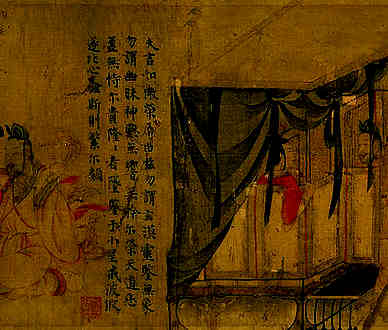 夫言如微榮辱由茲勿謂玄漠靈鑒無象
勿謂幽昧神聽無響無矜爾榮天道惡
盈無恃爾貴隆隆者墜鑒于小星戒彼攸
遂比心螽斯則繁爾類